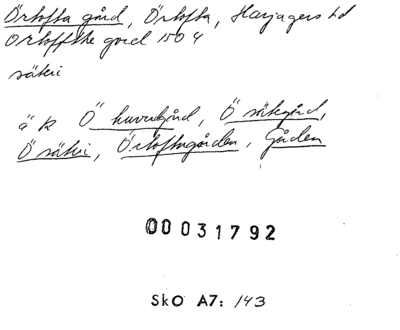 Örtofta gård, Örtofta, Harjagers hd
Ortoffthe gord 1504
säteri
ä k Ö huvudgård, Ö sätesgård,
Ö säteri, Örtoftagården, Gården
00031792
SkO A7: 143